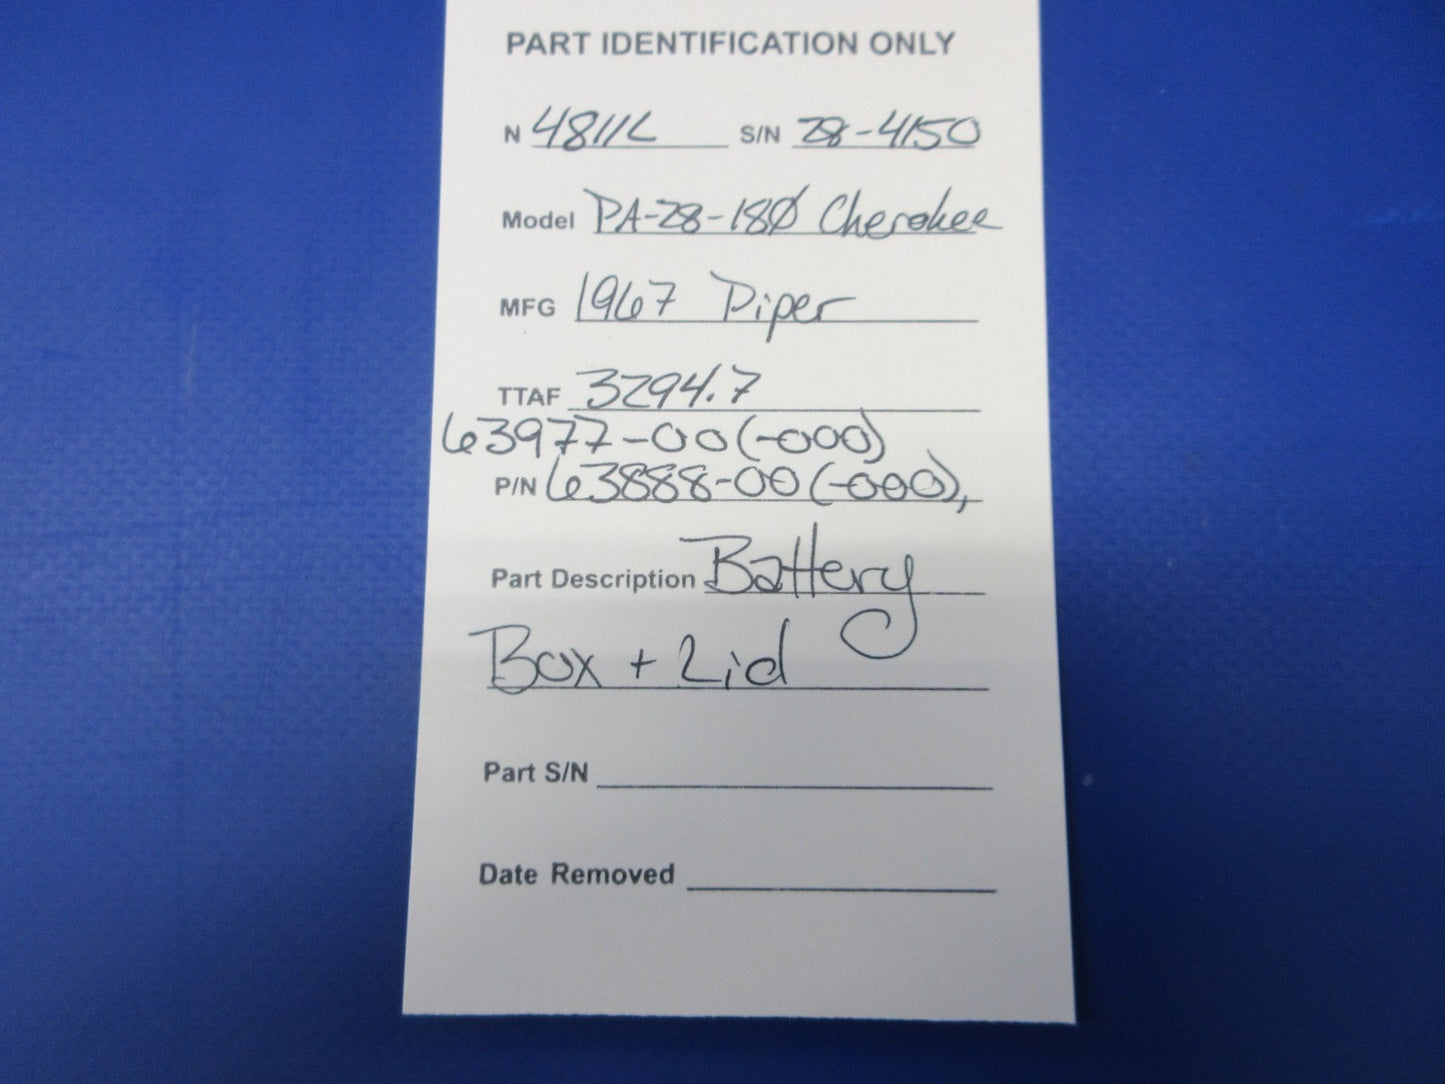 PART IDENTIFICATION ONLY
N 4811L S/N 28-4150
Model PA-28-180 Cherokee
MFG 1967 Piper
TTAF 3294.7
63977-00(-000)
P/N 63888-00(-000),
Part Description Battery
Box + Lid
Part S/N
Date Removed